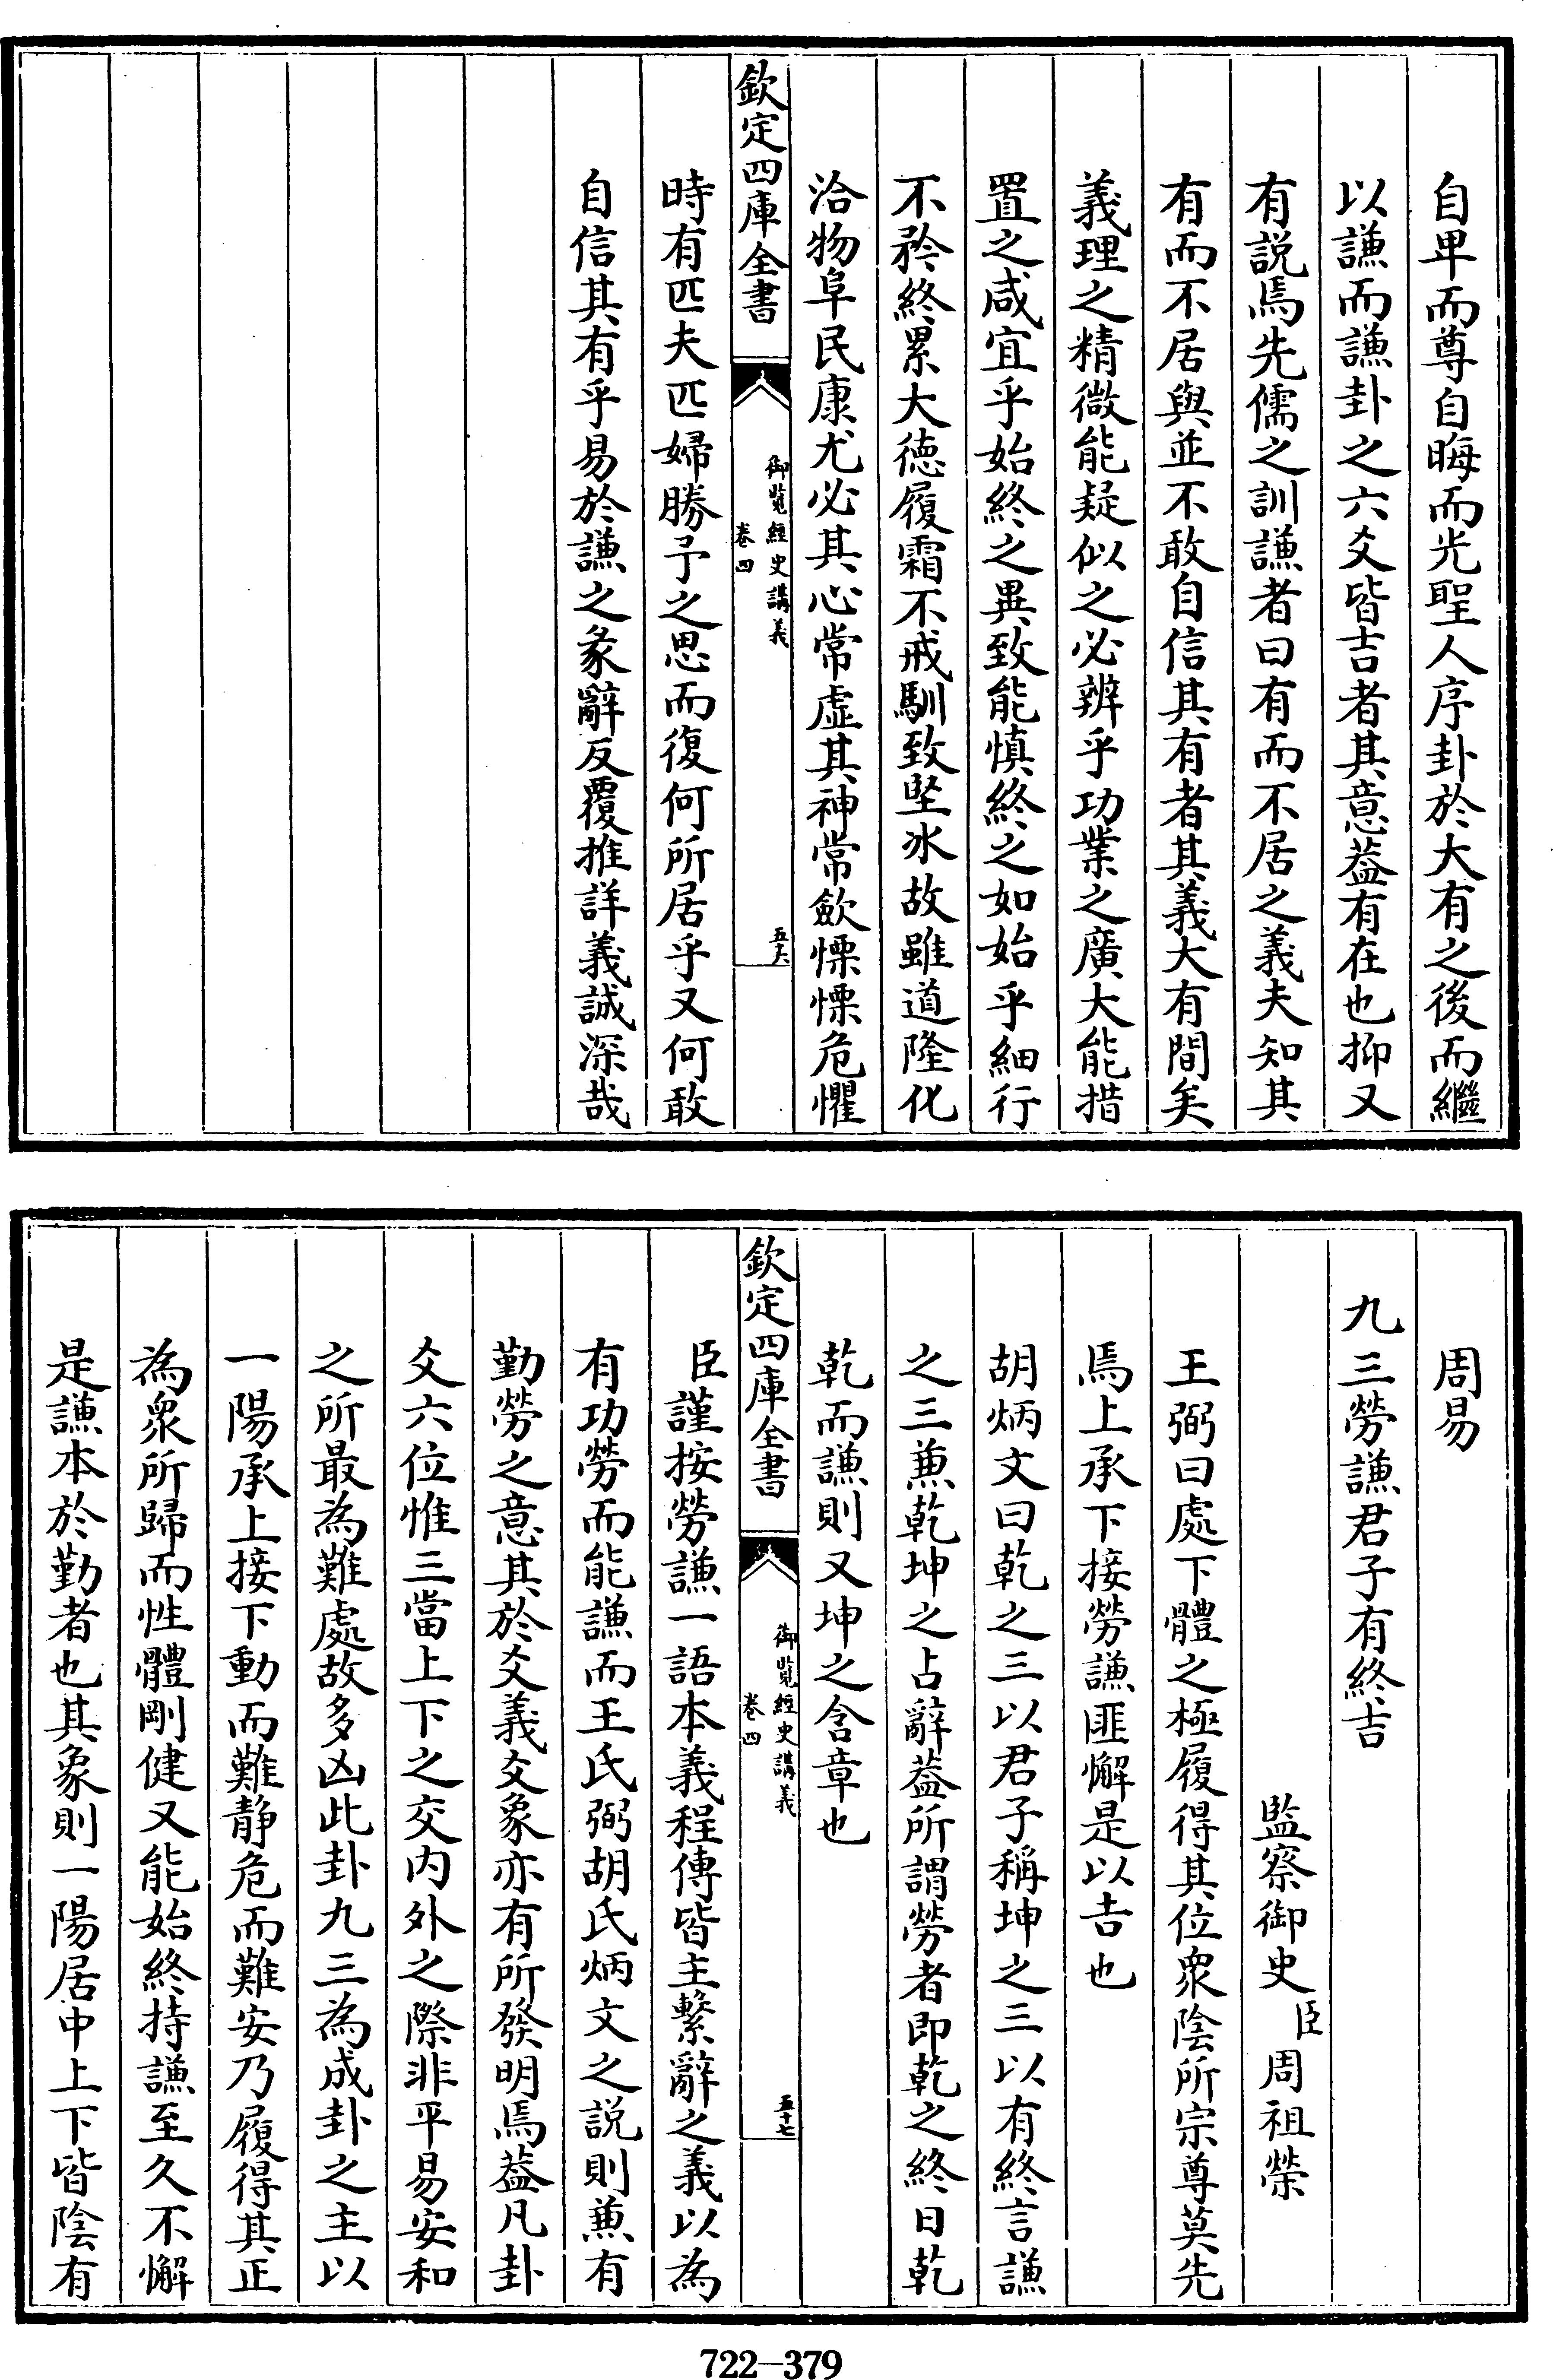 自卑而尊自晦而光聖人序卦於大有之後而繼
以謙而謙卦之六爻皆吉者其意葢有在也抑又
有説焉先儒之訓謙者曰有而不居之義夫知其
有而不居與並不敢自信其有者其義大有間矣
義理之精微能疑似之必辨乎功業之廣大能措
置之咸宜乎始終之異致能慎終之如始乎細行
不矜終累大徳履霜不戒馴致堅冰故雖道隆化
洽物阜民康尤必其心常虛其神常歛慄慄危懼
欽定四庫全書
御覽經史講義
卷四
五十六
時有匹夫匹婦勝予之思而復何所居乎又何敢
自信其有乎易於謙之彖辭反覆推詳義誠深哉
周易
九三勞謙君子有終吉
監察御史臣周祖榮
王弼曰處下體之極履得其位衆陰所宗尊莫先
焉上承下接勞謙匪懈是以吉也
胡炳文曰乾之三以君子稱坤之三以有終言謙
之三兼乾坤之占辭葢所謂勞者即乾之終日乾
乾而謙則又坤之含章也
欽定四庫全書
御覽經史講義
卷四
五十七
臣謹按勞謙一語本義程傳皆主繫辭之義以為
有功勞而能謙而王氏弼胡氏炳文之説則兼有
勤勞之意其於爻義爻象亦有所發明焉葢凡卦
爻六位惟三當上下之交内外之際非平易安和
之所最為難處故多凶此卦九三為成卦之主以
一陽承上接下動而難静危而難安乃履得其正
為衆所歸而性體剛健又能始終持謙至久不懈
是謙本於勤者也其象則一陽居中上下皆陰有
722-379